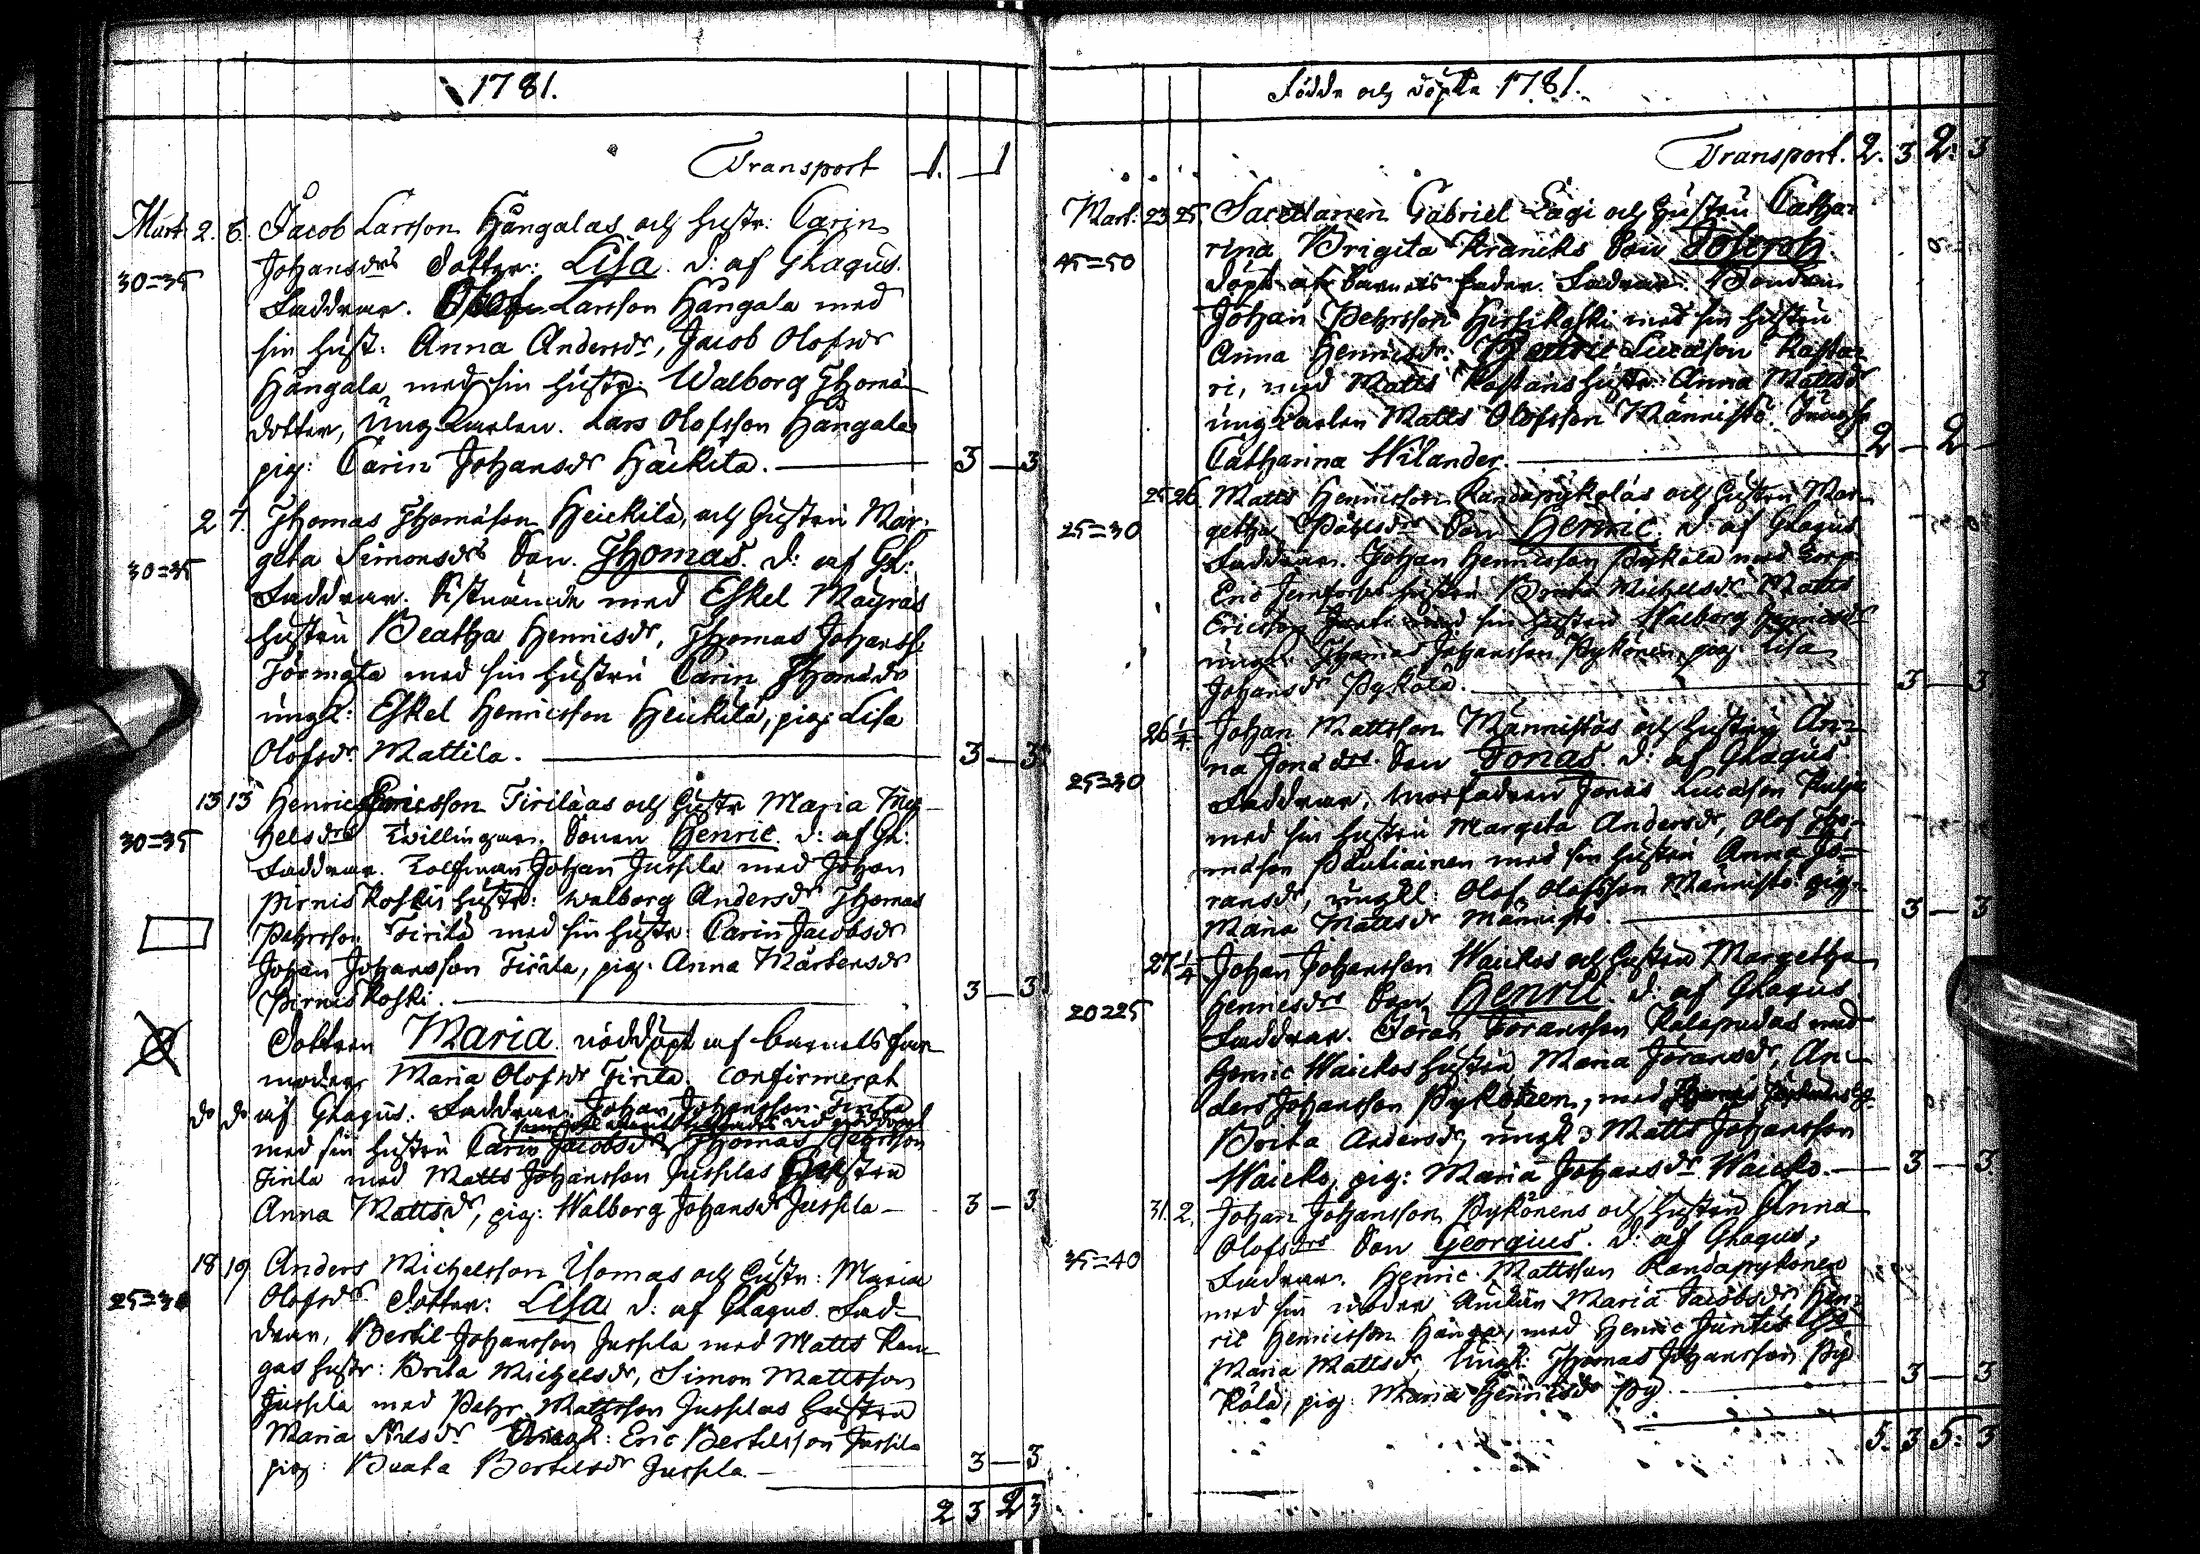 1781.
Transport 1. — 1
Mart. 2. 6. Jacob Larsson Hångalas och hustr: Carin
30=35 Johansdrs Dotter: Lisa. d: af Glagus.
Faddrar. Olof Larsson Hångala med
sin hust: Anna Andersdr, Jacob Olofsdr
Hångala med sin hustr: Walborg Thomä
dotter, Ung Karlen. Lars Olofsson Hångala
pig: Carin Johansdr Häikilä. — 3 — 3
2 7. Thomas Thomäson Heickilä, och hustru Mar-
30=35 geta Simonsdrs Son. Thomas. d: af Gl:
Faddrar. med Eskel Mäyräs
hustru Beatha Henricsdr, Thomas Johanss.
med sin hustru Carin Thomädr
ungk: Eskel Henricsson Heickilä, pig: Lisa
Olofsdr. Mattila. — 3 — 3
13 13 Henric Ericsson Tiriläas och hustr Maria Mic-
30=35 helsdrs Twillingar. Sonen Henric d: af Gl:
Faddrar. Tolfman Johan Jussila med Johan
Pirniskoskis hustr: Walborg Andersdr Thomas
Pehrsson Tirilä med sin hustr: Carin Jacobsdr
Johan Johansson Tirila, pig: Anna Mårtensdr
Pirniskoski. — 3 — 3
Dottren Maria. nöddöpt af barnets far-
moder Maria Olofsdr Tirila. confirmerat
do do af Glagus. Faddrar. Johan Johansson Tirila
med sin hustru Carin Jacobsdr Thomas Pehrsson
Tirila med Matts Johansson Jussilas hustru
Anna Mattsdr, pig: Walborg Johansdr Jussila — 3 — 3
18 19 Anders Michelsson Uomas och hustr: Maria
25=30 Olofsdrs Dotter: Lisa d: af Glagus. Fad-
drar, Bertil Johansson Jussila med Matts Kan-
gas hustr: Brita Michelsdr, Simon Mattsson
Jussila med Pehr Mattsson Jussilas hustru
Maria Nilsdr. Ungk: Eric Bertilsson Jussila
pig: Beata Bertilsdr Jussila — 3 — 3
2 3 2 3
Födde och döpte 1781.
Transport. 2. 3 2. 3
Mart. 23 25. Sacellanen Gabriel Lagi och hustru Catha-
45=50 rina Brigita Krancks Son Joseph
döpt af barnets fader. Fadrar. Bonden
Johan Pehrsson Hirsikoski med sin hustru
Anna Henricsdr. Henric Lucason Rasta-
ri, med Matts Rastaris hustr: Anna Mattsdr
ung Karlen Matts Olofsson Männistö.
Catharina Wilander. — 2 — 2 —
25 26. Matts Henricsson Randapykoläs och hustru Mar-
25=30 getha Påhlsdrs Son Henric. d: af Glagus
Faddrar. Johan Henricsson Pyköla med Korp.
Eric hustru Brita Michelsdr Matts
Ericsson med sin hustru Walborg Henricsdr
ungk. Thomas Johansson Pykönen, pig: Lisa
Johansdr Pykölä. — 3 — 3
26 1/4 Johan Mattsson Männistös och hustru An-
25=30 na Jonädrs. Son Jonas. d: af Glagus.
Faddrar, Morfadren Jonas Lucason
med sin hustru Margeta Andersdr, Olof Tho-
mäson Pauliainen med sin hustru Anna Jö-
ransdr, ungkl: Olof Olofsson Männistö pig:
Maria Mattsdr Männistö. — 3 — 3
27 1/4 Johan Johansson Waickos och hustru Margetha
20=25 Henricsdrs Son Henric. d: af Glagus
Faddrar. Jöran Göransson Kalapudas med
Henric Waickos hustru Maria Jöransdr, An-
ders Johansson Pykönen, med
Brita Andersdr, ungk: Matts Johansson
Waicko, pig: Maria Johansdr Waicko. — 3 — 3
31. 2. Johan Johansson Pykönens och hustru Anna
35=40 Olofsdrs Son Georgius. d: af Glagus,
Fadrar. Henric Mattsson Randapykönen
med sin moder Änkan Maria Jacobsdr Hen-
ric Henricsson Hånga, med Henric Juntis H.
Maria Mattsdr, Ungk: Thomas Johansson Py-
kölä, pig: Maria Henricsdr Py — 3 — 3
5. 3 5. 3